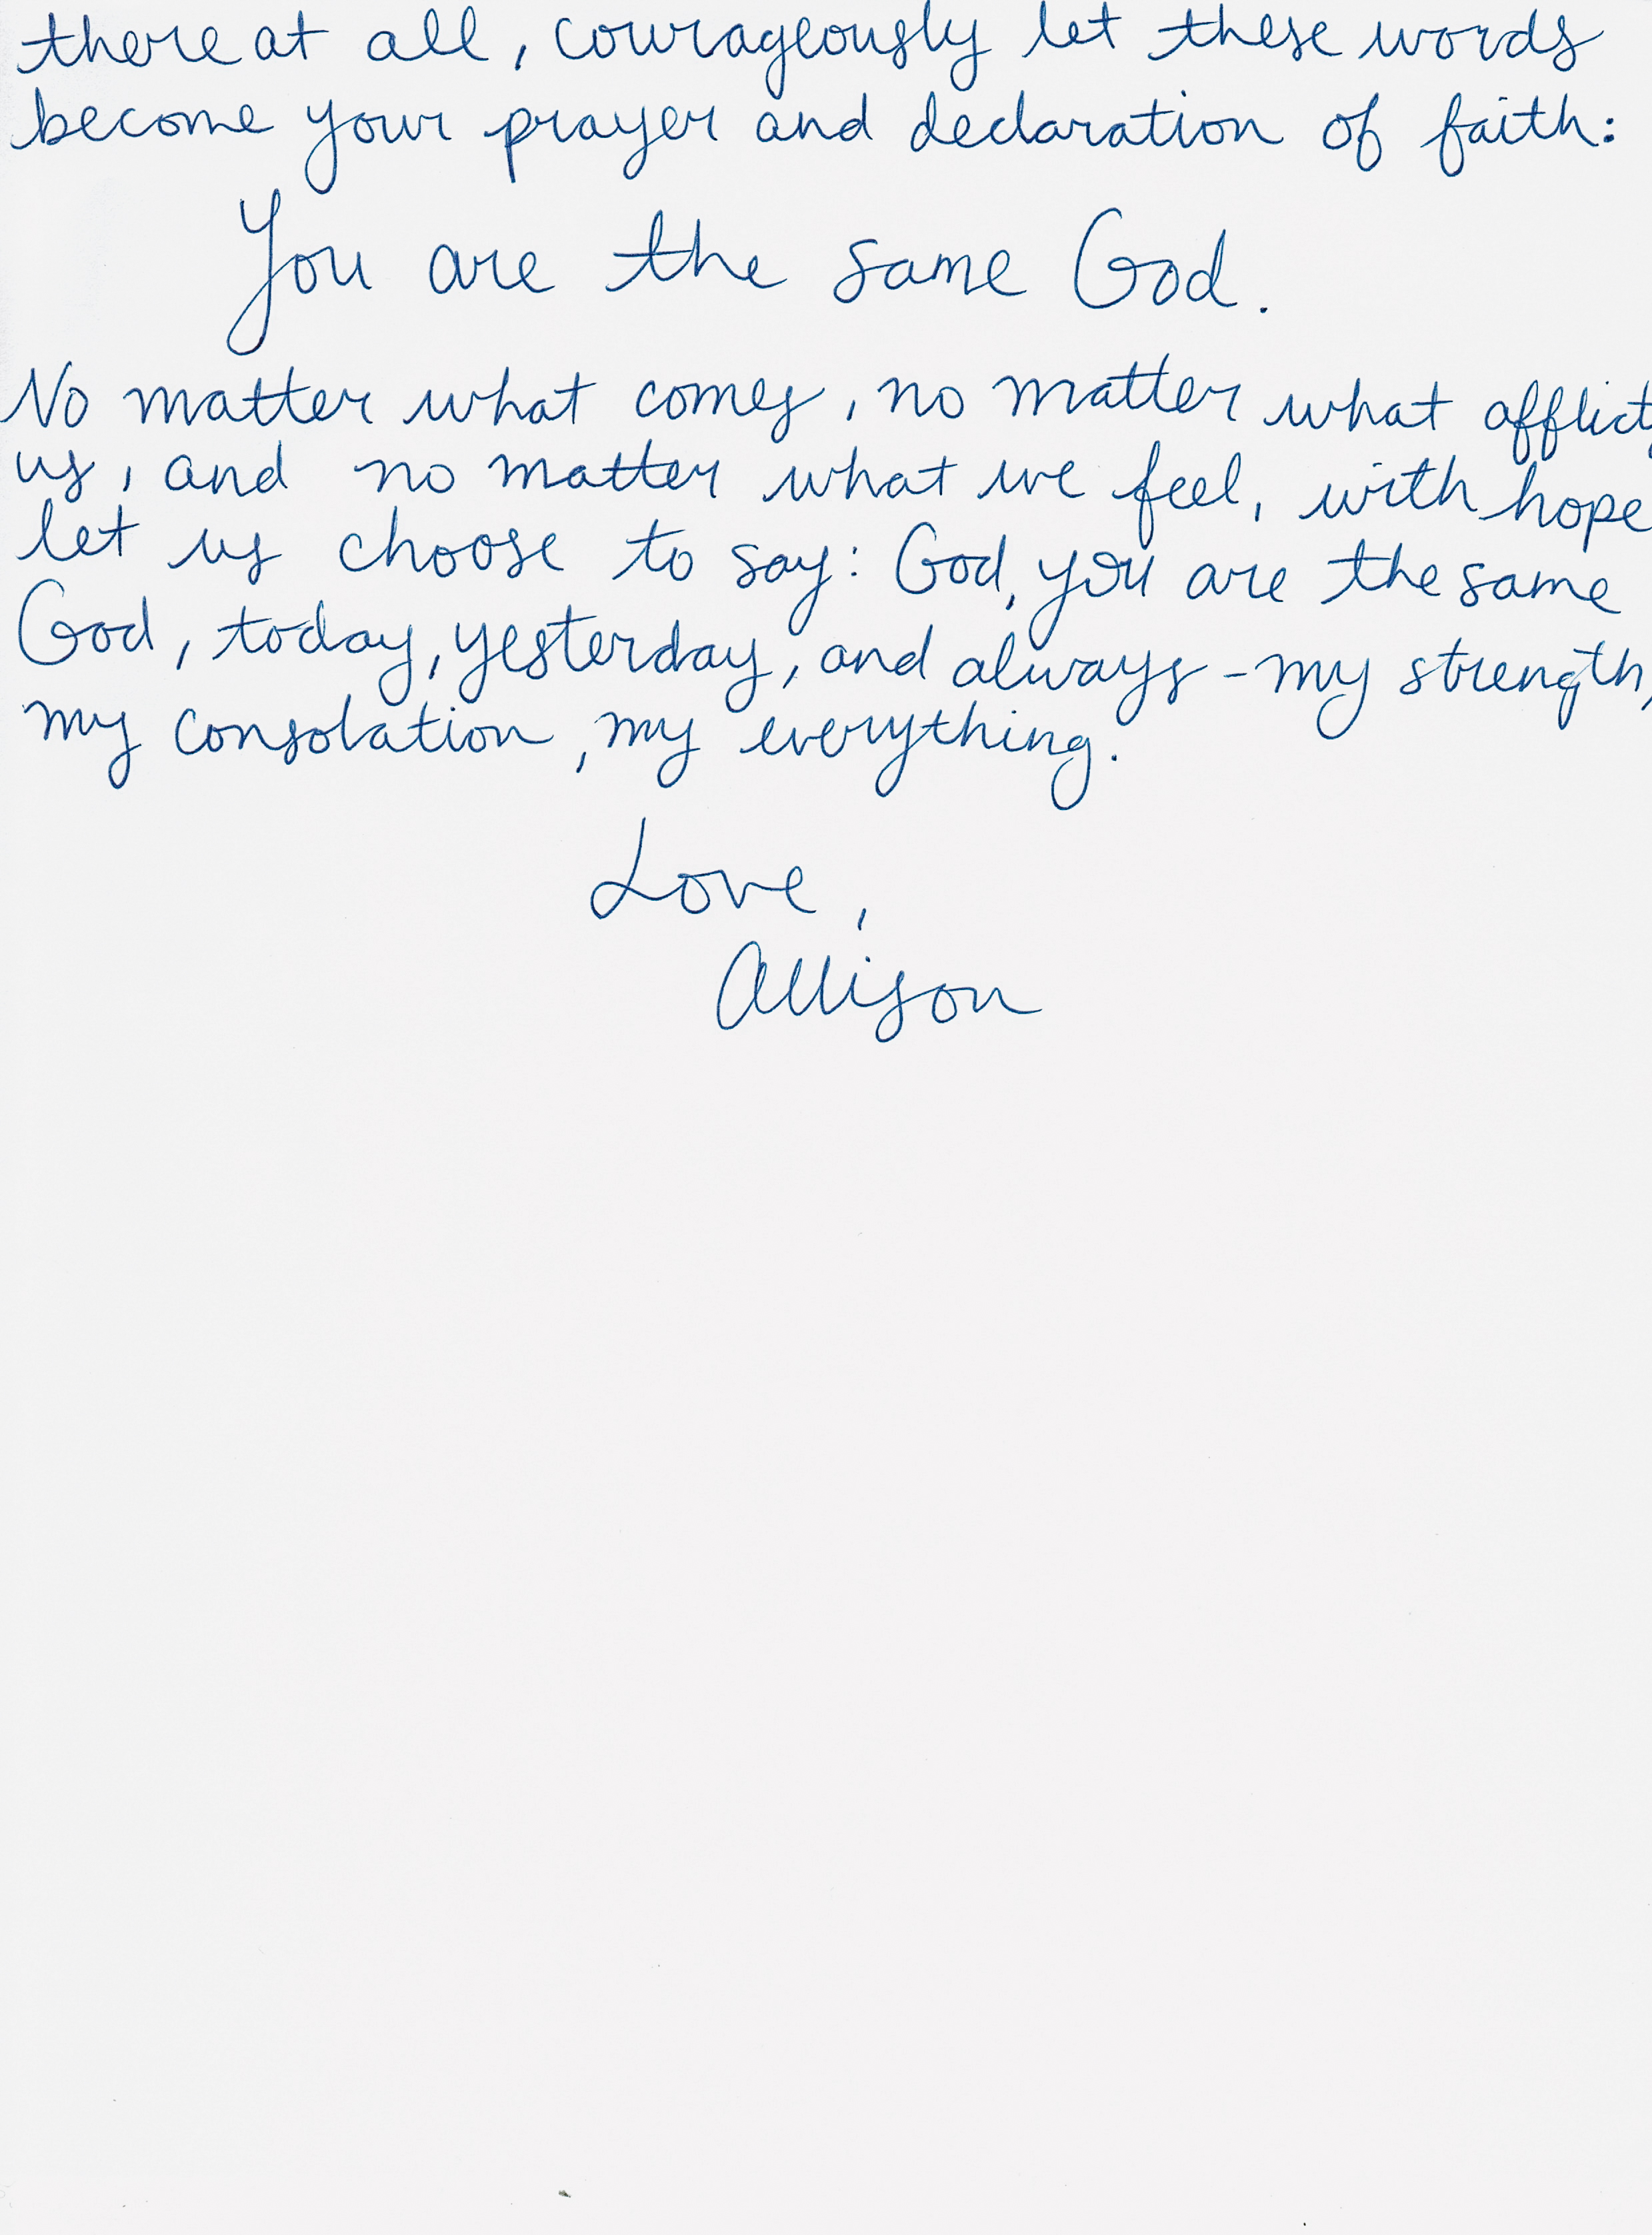 there at all, courageously let these words
become your prayer and declaration of faith:
You are the same God.
No matter what comes, no matter what afflict
us, and no matter what we feel, with hope
let us choose to say: God, you are the same
God, today, yesterday, and always - my strength,
my consolation, my everything.
Love,
Allison